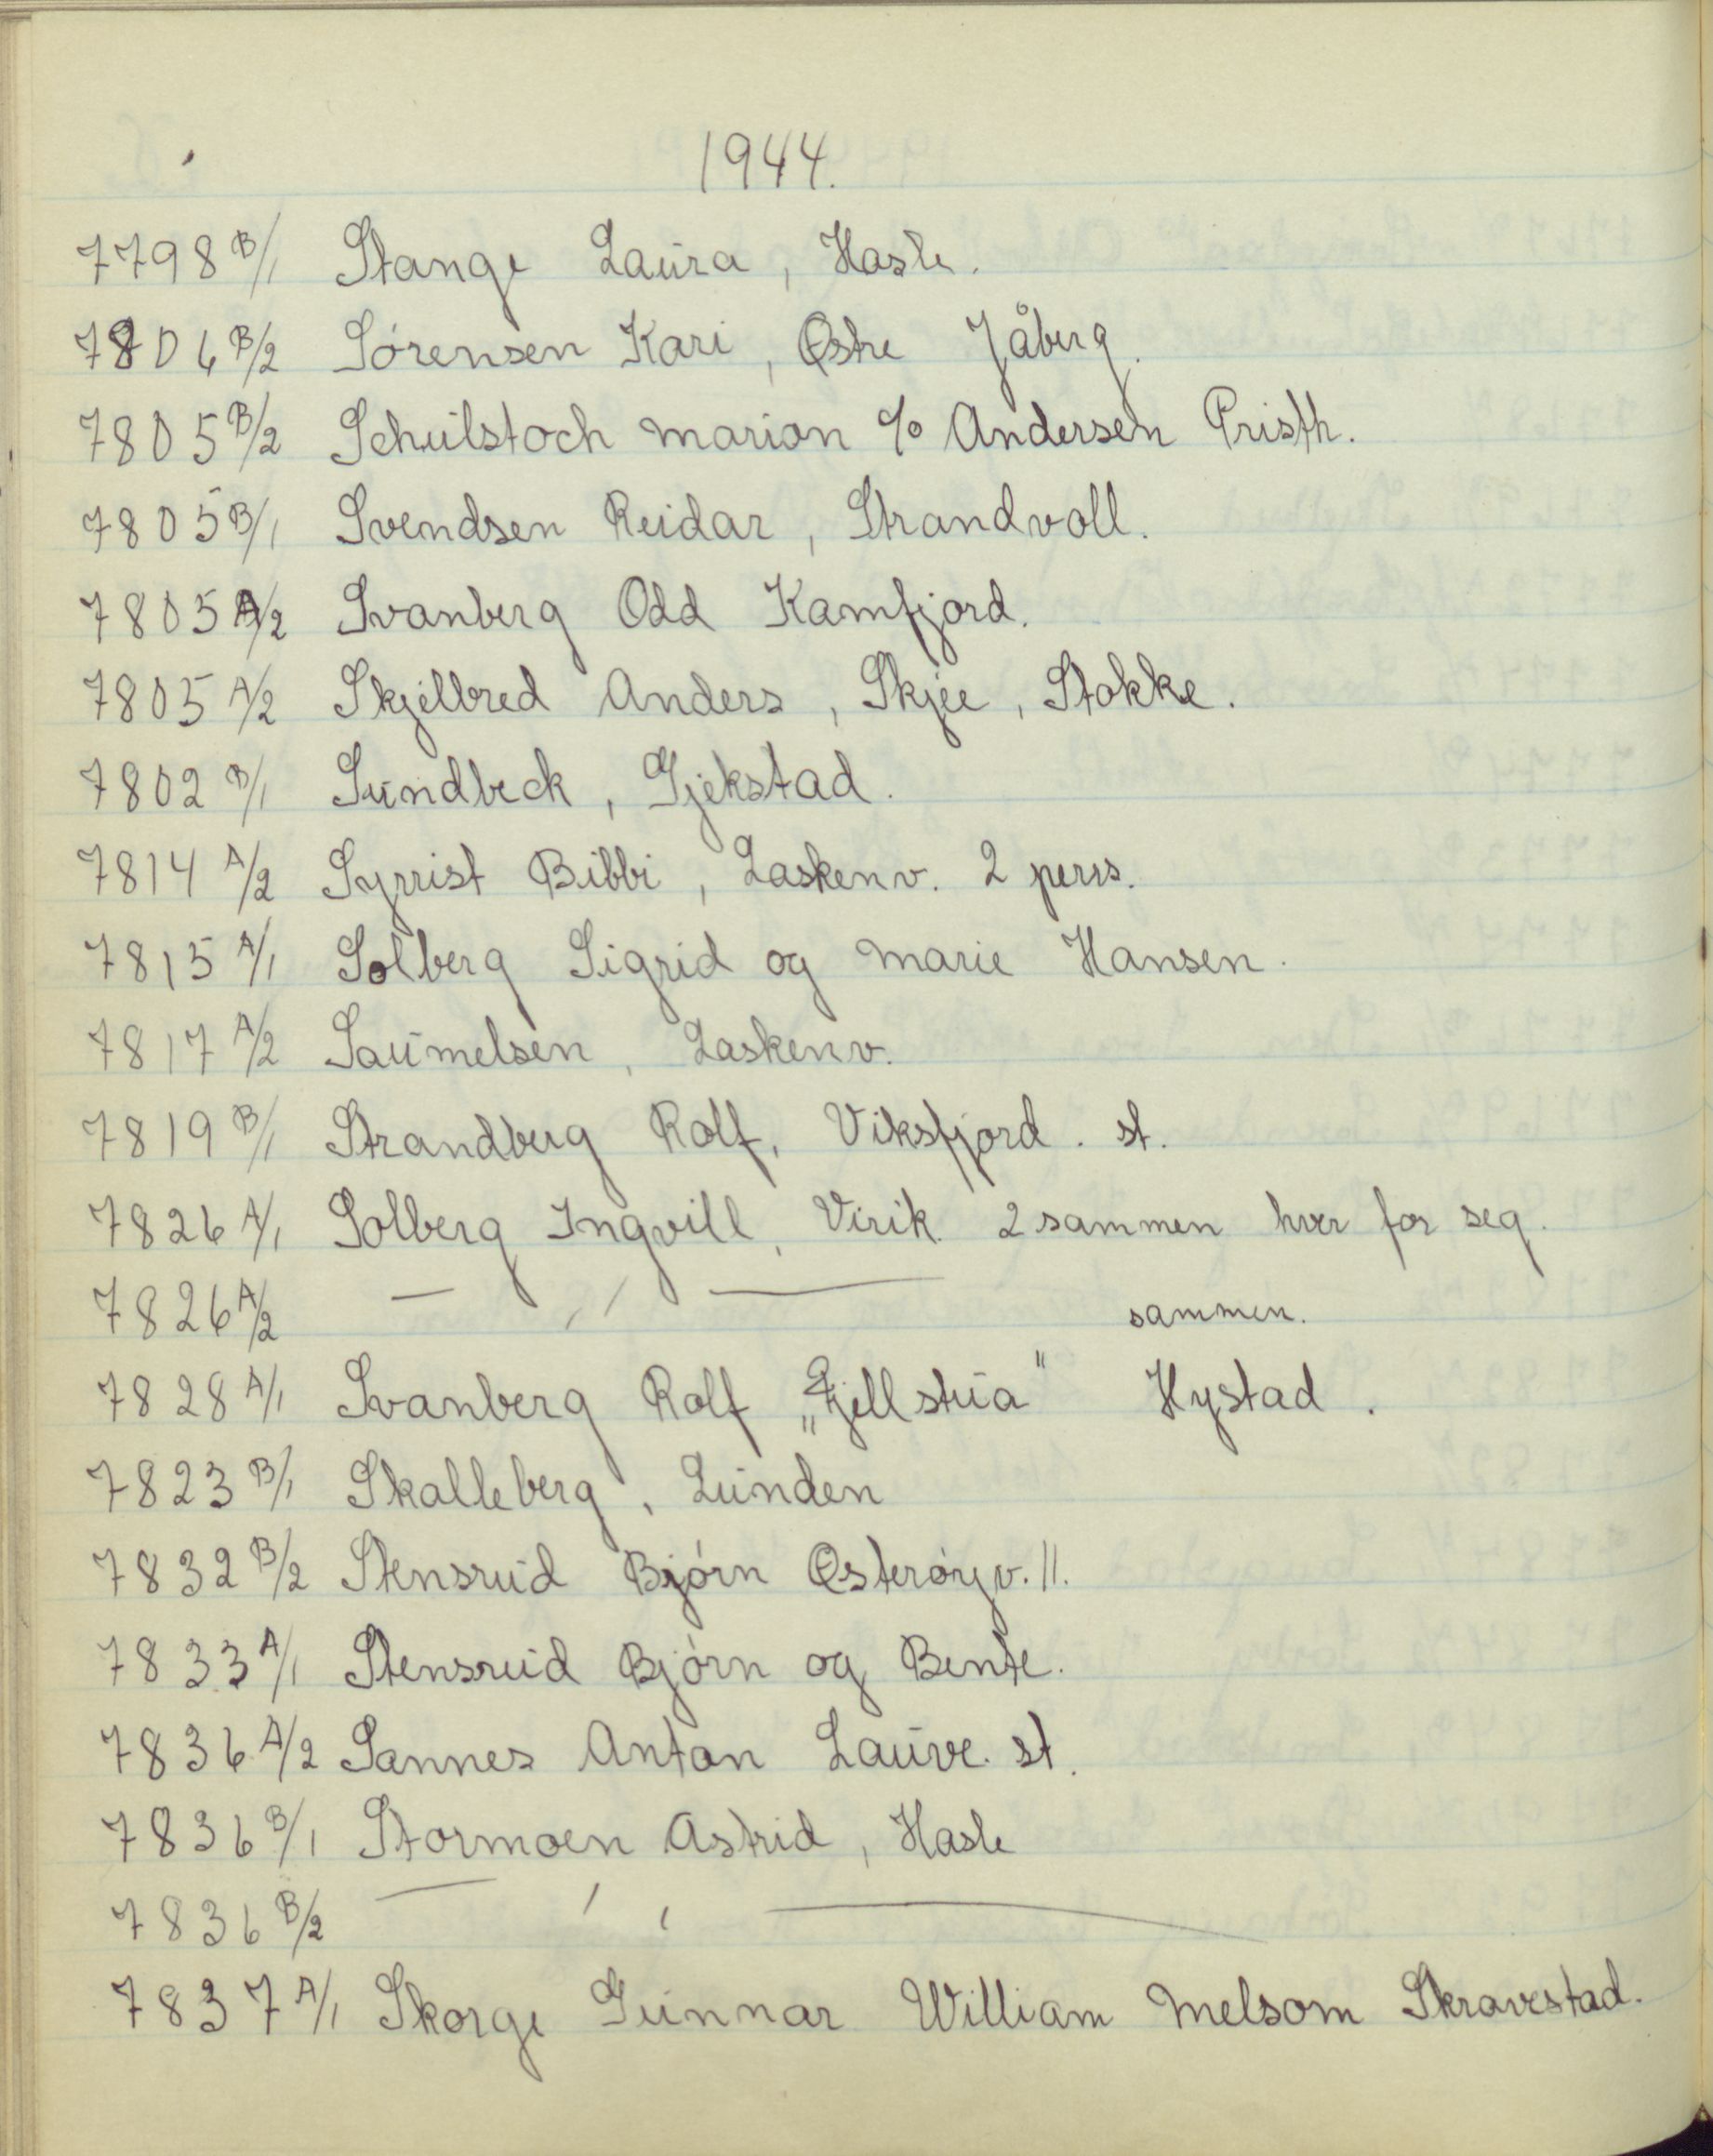 1944.
7798 B/1 Stange Laura, Hasle.
7804 B/2 Sørensen Kari, Østre Jåberg.
7805 B/2 Schulstoch Marion c/o Andersen Presth.
7805 B/1 Svendsen Reidar, Strandvoll.
7805 A/2 Svanberg Odd Kamfjord.
7805 A/2 Skjellbred Anders, Skjee, Stokke.
7802 B/1 Sundbeck, Gjekstad.
7814 A/2 Syrrist Bibbi, Laskenv. 2 pers.
7815 A/1 Solberg Sigrid og Marie Hansen.
7817 A/2 Saumelsen, Laskenv.
7819 B/1 Strandberg Rolf, Viksfjord. st.
7826 A/1 Solberg Ingvill, Virik. 2 sammen hver for seg.
7826 A/2 — ,, — sammen.
7828 A/1 Svanberg Rolf „Fjellstua" Hystad.
7823 B/1 Skalleberg, Lunden
7832 B/2 Stensrud Bjørn Østerøyv. 11.
7833 A/1 Stensrud Bjørn og Bente.
7836 A/2 Sannes Anton Lauve. st.
7836 B/1 Stormoen Astrid, Hasle
7836 B/2 — ,, —
7837 A/1 Skorge Gunnar William Melsom Skravestad.